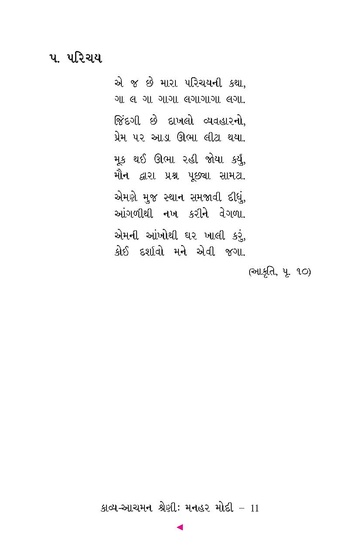 ૫. પરિચય
એ જ છે મારા પરિચયની કથા,
ગા લ ગા ગાગા લગાગાગા લગા.
જિંદગી છે દાખલો વ્યવહારનો,
પ્રેમ પર આડા ઊભા લીટા થયા.
મૂક થઈ ઊભા રહી જોયા કર્યું,
મૌન દ્વારા પ્રશ્ન પૂછ્યા સામટા.
એમણે મુજ સ્થાન સમજાવી દીધું,
આંગળીથી નખ કરીને વેગળા.
એમની આંખોથી ઘર ખાલી કરું,
કોઈ દર્શાવો મને એવી જગા.
(આકૃતિ, પૃ. ૧૦)
કાવ્ય-આચમન શ્રેણીઃ મનહર મોદી – 11